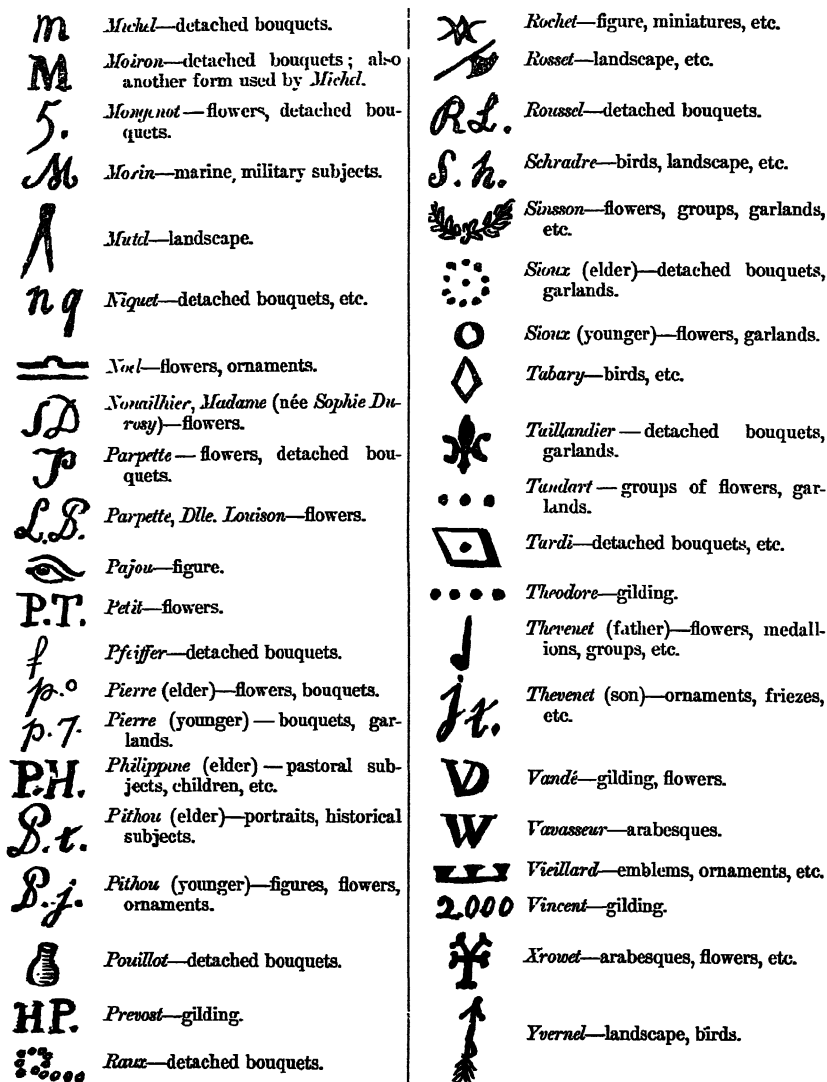 m Michel—detached bouquets.
M Moiron—detached bouquets; also
another form used by Michel.
5. Mongenot—flowers, detached bou-
quets.
M Morin—marine, military subjects.
Mutel—landscape.
nq Niquet—detached bouquets, etc.
Noel—flowers, ornaments.
SD Nouailhier, Madame (née Sophie Du-
rosy)—flowers.
P Parpette—flowers, detached bou-
quets.
L.B. Parpette, Dlle. Louison—flowers.
Pajou—figure.
P.T. Petit—flowers.
f Pfeiffer—detached bouquets.
p.o Pierre (elder)—flowers, bouquets.
p.7. Pierre (younger)—bouquets, gar-
lands.
P.H. Philippine (elder)—pastoral sub-
jects, children, etc.
P.t. Pithou (elder)—portraits, historical
subjects.
P.j. Pithou (younger)—figures, flowers,
ornaments.
Pouillot—detached bouquets.
HP. Prevost—gilding.
Raux—detached bouquets.
Rochet—figure, miniatures, etc.
Rosset—landscape, etc.
RL. Roussel—detached bouquets.
S.h. Schradre—birds, landscape, etc.
Sinsson—flowers, groups, garlands,
etc.
Sioux (elder)—detached bouquets,
garlands.
Sioux (younger)—flowers, garlands.
Tabary—birds, etc.
Taillandier—detached bouquets,
garlands.
Tandart—groups of flowers, gar-
lands.
Tardi—detached bouquets, etc.
Theodore—gilding.
Thevenet (father)—flowers, medall-
ions, groups, etc.
jt. Thevenet (son)—ornaments, friezes,
etc.
VD Vandé—gilding, flowers.
W Vavasseur—arabesques.
Vieillard—emblems, ornaments, etc.
2.000 Vincent—gilding.
Xrowet—arabesques, flowers, etc.
Yvernel—landscape, birds.